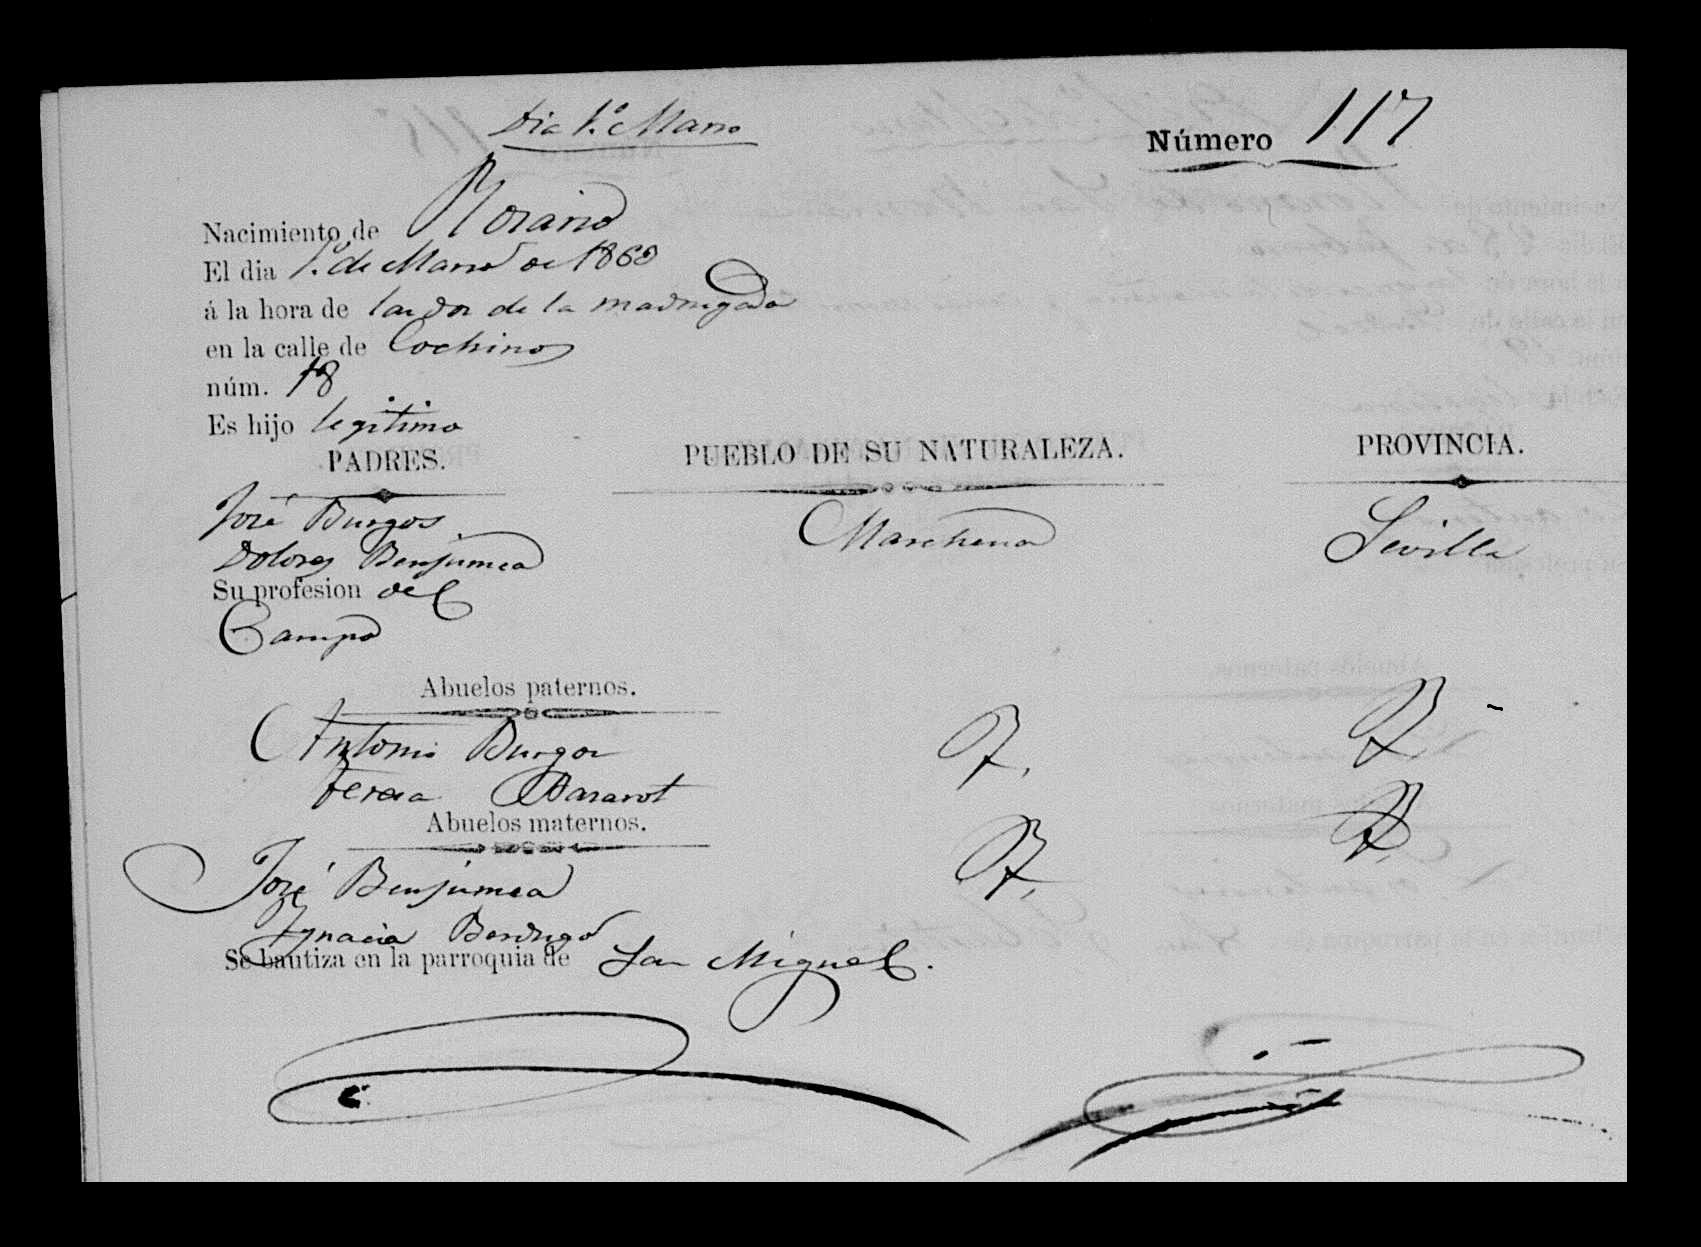 Dia 1.º Marzo
Número 117
Nacimiento de Rosario
El dia 1.º de Marzo de 1860
á la hora de las dos de la madrugada
en la calle de Cochinos
núm. 18
Es hijo legítimo
PADRES. PUEBLO DE SU NATURALEZA. PROVINCIA.
José Burgos Marchena Sevilla
Dolores Benjumea
Su profesion del
Campo
Abuelos paternos.
Antonio Burgos
Teresa
Abuelos maternos.
José Benjumea
Ignacia Berdugo
Se bautiza en la parroquia de San Miguel.